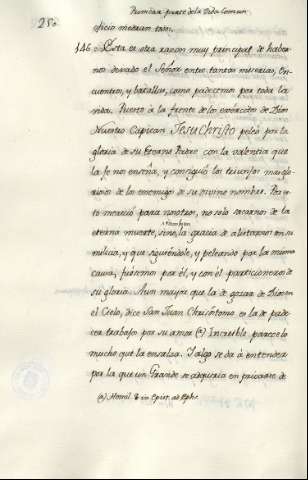 250
Primera parte de la Vida Comun.
oficio metrum tuin.
146. Esta es otra razon muy principal de haber-
nos dexado el Señor entre tantas miserias, en-
cuentros, y batallas, como padecemos por toda la
vida. Puesto à la frente de los exércitos de Dios
Nuestro Capitan Jesu Christo peleó por la
gloria de su Eterno Padre con la valentia que
la fe nos enseña, y consiguió los triunfos mas glo-
riosos de los enemigos de su divino nombre. Pero es-
to mereció para nosotros, no solo sacarnos de la
eterna muerte, sino tambien la gracia de alistarnos en su
milicia, y que siguiendole, y peleando por la misma
causa, fuesemos por él, y con él participioneros de
su gloria. Aun mayor que la de gozar de Dios en
el Cielo, dice San Juan Chrisóstomo es la de pade-
cer trabajos por su amor (a) Increible parece lo
mucho que la ensalza. Y algo se da à entender
por la que un Grande se adquiria en privarse de
(a) Homil. 8 in Epist. ad Ephe.